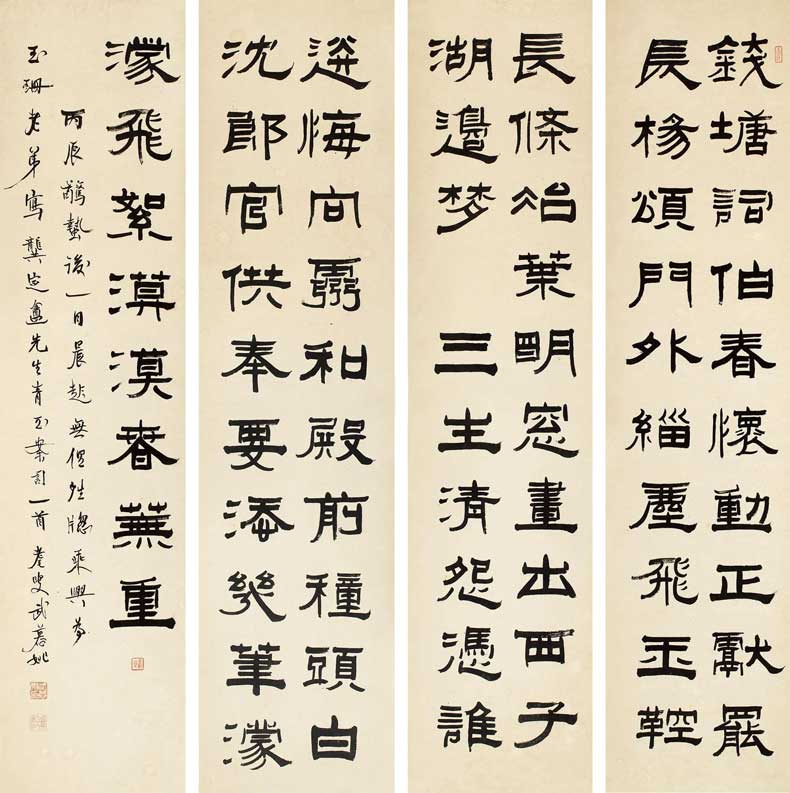 錢塘詞伯春懷動正獻罷
長楊頌門外緇塵飛玉鞚
長條冶葉明窓畫出西子
湖邊梦 三生清怨憑誰
送悔向靈和殿前種頭白
沈郎官供奉要添幾筆濛
濛飛絮漠漠春蕪重
丙辰驚蟄後一日晨起無俚夝牕乘興為
玉珊老弟寫龔定盦先生青玉案詞一首 耄叟武慕姚